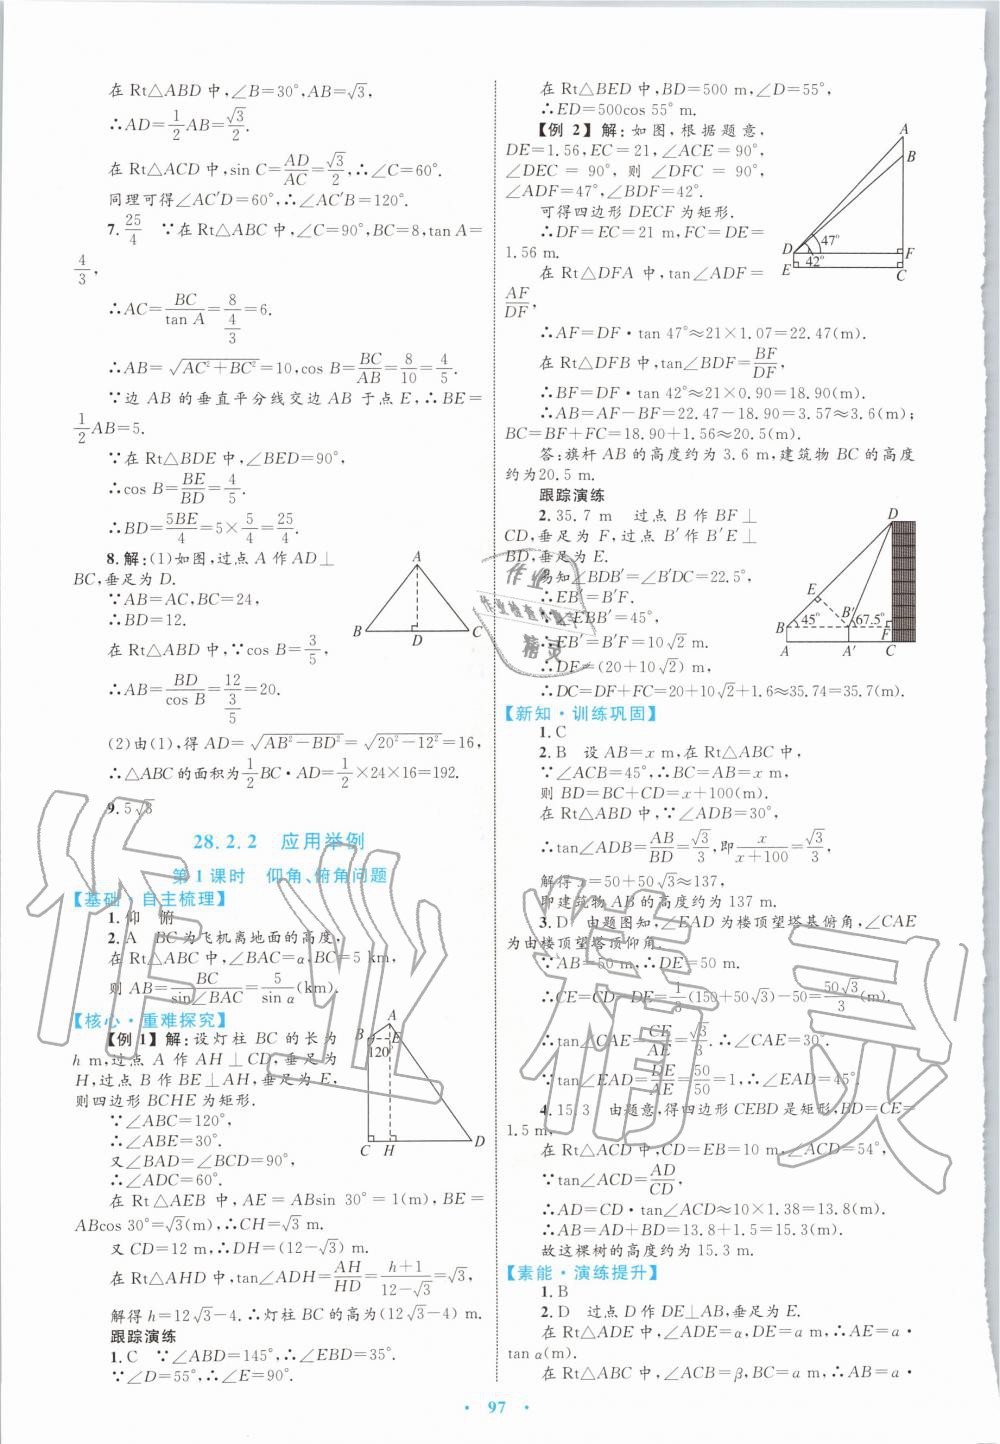 在 Rt△ABD 中,∠B=30°,AB=√3,
∴AD=1/2AB=√3/2.
在 Rt△ACD 中,sin C=AD/AC=√3/2,∴∠C=60°.
同理可得∠AC′D=60°,∴∠AC′B=120°.
7.25/4 ∵在 Rt△ABC 中,∠C=90°,BC=8,tan A=
4/3,
∴AC=BC/tan A=8/(4/3)=6.
∴AB=√(AC²+BC²)=10,cos B=BC/AB=8/10=4/5.
∵边 AB 的垂直平分线交边 AB 于点 E,∴BE=
1/2AB=5.
∵在 Rt△BDE 中,∠BED=90°,
∴cos B=BE/BD=4/5.
∴BD=5BE/4=5×5/4=25/4.
8.解:(1)如图,过点 A 作AD⊥
BC,垂足为 D.
∵AB=AC,BC=24,
∴BD=12.
在 Rt△ABD 中,∵cos B=3/5,
∴AB=BD/cos B=12/(3/5)=20.
A
B
D
C
(2)由(1),得 AD=√(AB²−BD²)=√(20²−12²)=16,
∴△ABC 的面积为1/2BC·AD=1/2×24×16=192.
9.5√3
28.2.2 应用举例
第1课时 仰角、俯角问题
【基础·自主梳理】
1.仰 俯
2.A BC为飞机离地面的高度,
在 Rt△ABC 中,∠BAC=α,BC=5 km,
则 AB=BC/sin∠BAC=5/sin α(km).
【核心·重难探究】
【例 1】解:设灯柱 BC 的长为
h m,过点 A 作 AH⊥CD,垂足为
H,过点 B 作 BE⊥AH,垂足为 E,
则四边形 BCHE 为矩形.
∵∠ABC=120°,
∴∠ABE=30°.
又∠BAD=∠BCD=90°,
∴∠ADC=60°.
A
B
E
120°
C
H
D
在 Rt△AEB 中,AE=ABsin 30°=1(m),BE=
ABcos 30°=√3(m),∴CH=√3 m.
又 CD=12 m,∴DH=(12−√3)m.
在 Rt△AHD 中,tan∠ADH=AH/HD=(h+1)/(12−√3)=√3,
解得 h=12√3−4.∴灯柱 BC 的高为(12√3−4) m.
跟踪演练
1.C ∵∠ABD=145°,∴∠EBD=35°.
∵∠D=55°,∴∠E=90°.
在 Rt△BED 中,BD=500 m,∠D=55°,
∴ED=500cos 55° m.
【例 2】解:如图,根据题意,
DE=1.56,EC=21,∠ACE=90°,
∠DEC=90°,则∠DFC=90°,
∠ADF=47°,∠BDF=42°.
可得四边形 DECF 为矩形.
∴DF=EC=21 m,FC=DE=
1.56 m.
在 Rt△DFA 中,tan∠ADF=
AF/DF,
A
B
D
47°
F
E
42°
C
∴AF=DF·tan 47°≈21×1.07=22.47(m).
在 Rt△DFB 中,tan∠BDF=BF/DF,
∴BF=DF·tan 42°≈21×0.90=18.90(m).
∴AB=AF−BF=22.47−18.90=3.57≈3.6(m);
BC=BF+FC=18.90+1.56≈20.5(m).
答:旗杆 AB 的高度约为 3.6 m,建筑物 BC 的高度
约为20.5 m.
跟踪演练
2.35.7 m 过点 B 作 BF⊥
CD,垂足为 F,过点 B′作 B′E⊥
BD,垂足为 E.
易知∠BDB′=∠B′DC=22.5°,
∴EB′=B′F.
∵∠EBB′=45°,
∴EB′=B′F=10√2 m.
∴DF=(20+10√2)m.
D
E
B
45°
B′
67.5°
F
A
A′
C
∴DC=DF+FC=20+10√2+1.6≈35.74=35.7(m).
【新知·训练巩固】
1.C
2.B 设 AB=x m,在 Rt△ABC 中,
∵∠ACB=45°,∴BC=AB=x m.
则 BD=BC+CD=x+100(m),
在 Rt△ABD 中,∵∠ADB=30°,
∴tan∠ADB=AB/BD=√3/3,即x/(x+100)=√3/3,
解得 x=50+50√3≈137,
即建筑物 AB 的高度约为 137 m.
3.D 由题图知,∠EAD为楼顶望塔基俯角,∠CAE
为由楼顶望塔顶仰角.
∵AB=50 m,∴DE=50 m.
∴CE=CD−DE=1/3(150+50√3)−50=50√3/3(m).
∴tan∠CAE=CE/AE=√3/3,∴∠CAE=30°.
∵tan∠EAD=DE/AE=50/50=1,∴∠EAD=45°.
4.15.3 由题意,得四边形 CEBD 是矩形,BD=CE=
1.5 m,
在 Rt△ACD 中,CD=EB=10 m,∠ACD=54°,
∵tan∠ACD=AD/CD,
∴AD=CD·tan∠ACD≈10×1.38=13.8(m).
∴AB=AD+BD=13.8+1.5=15.3(m).
故这棵树的高度约为 15.3 m.
【素能·演练提升】
1.B
2.D 过点 D 作 DE⊥AB,垂足为 E.
在 Rt△ADE 中,∠ADE=α,DE=a m,∴AE=a·
tan α(m).
在 Rt△ABC 中,∠ACB=β,BC=a m,∴AB=a·
· 97 ·
作业精灵
作业
作业检查小助手
精灵